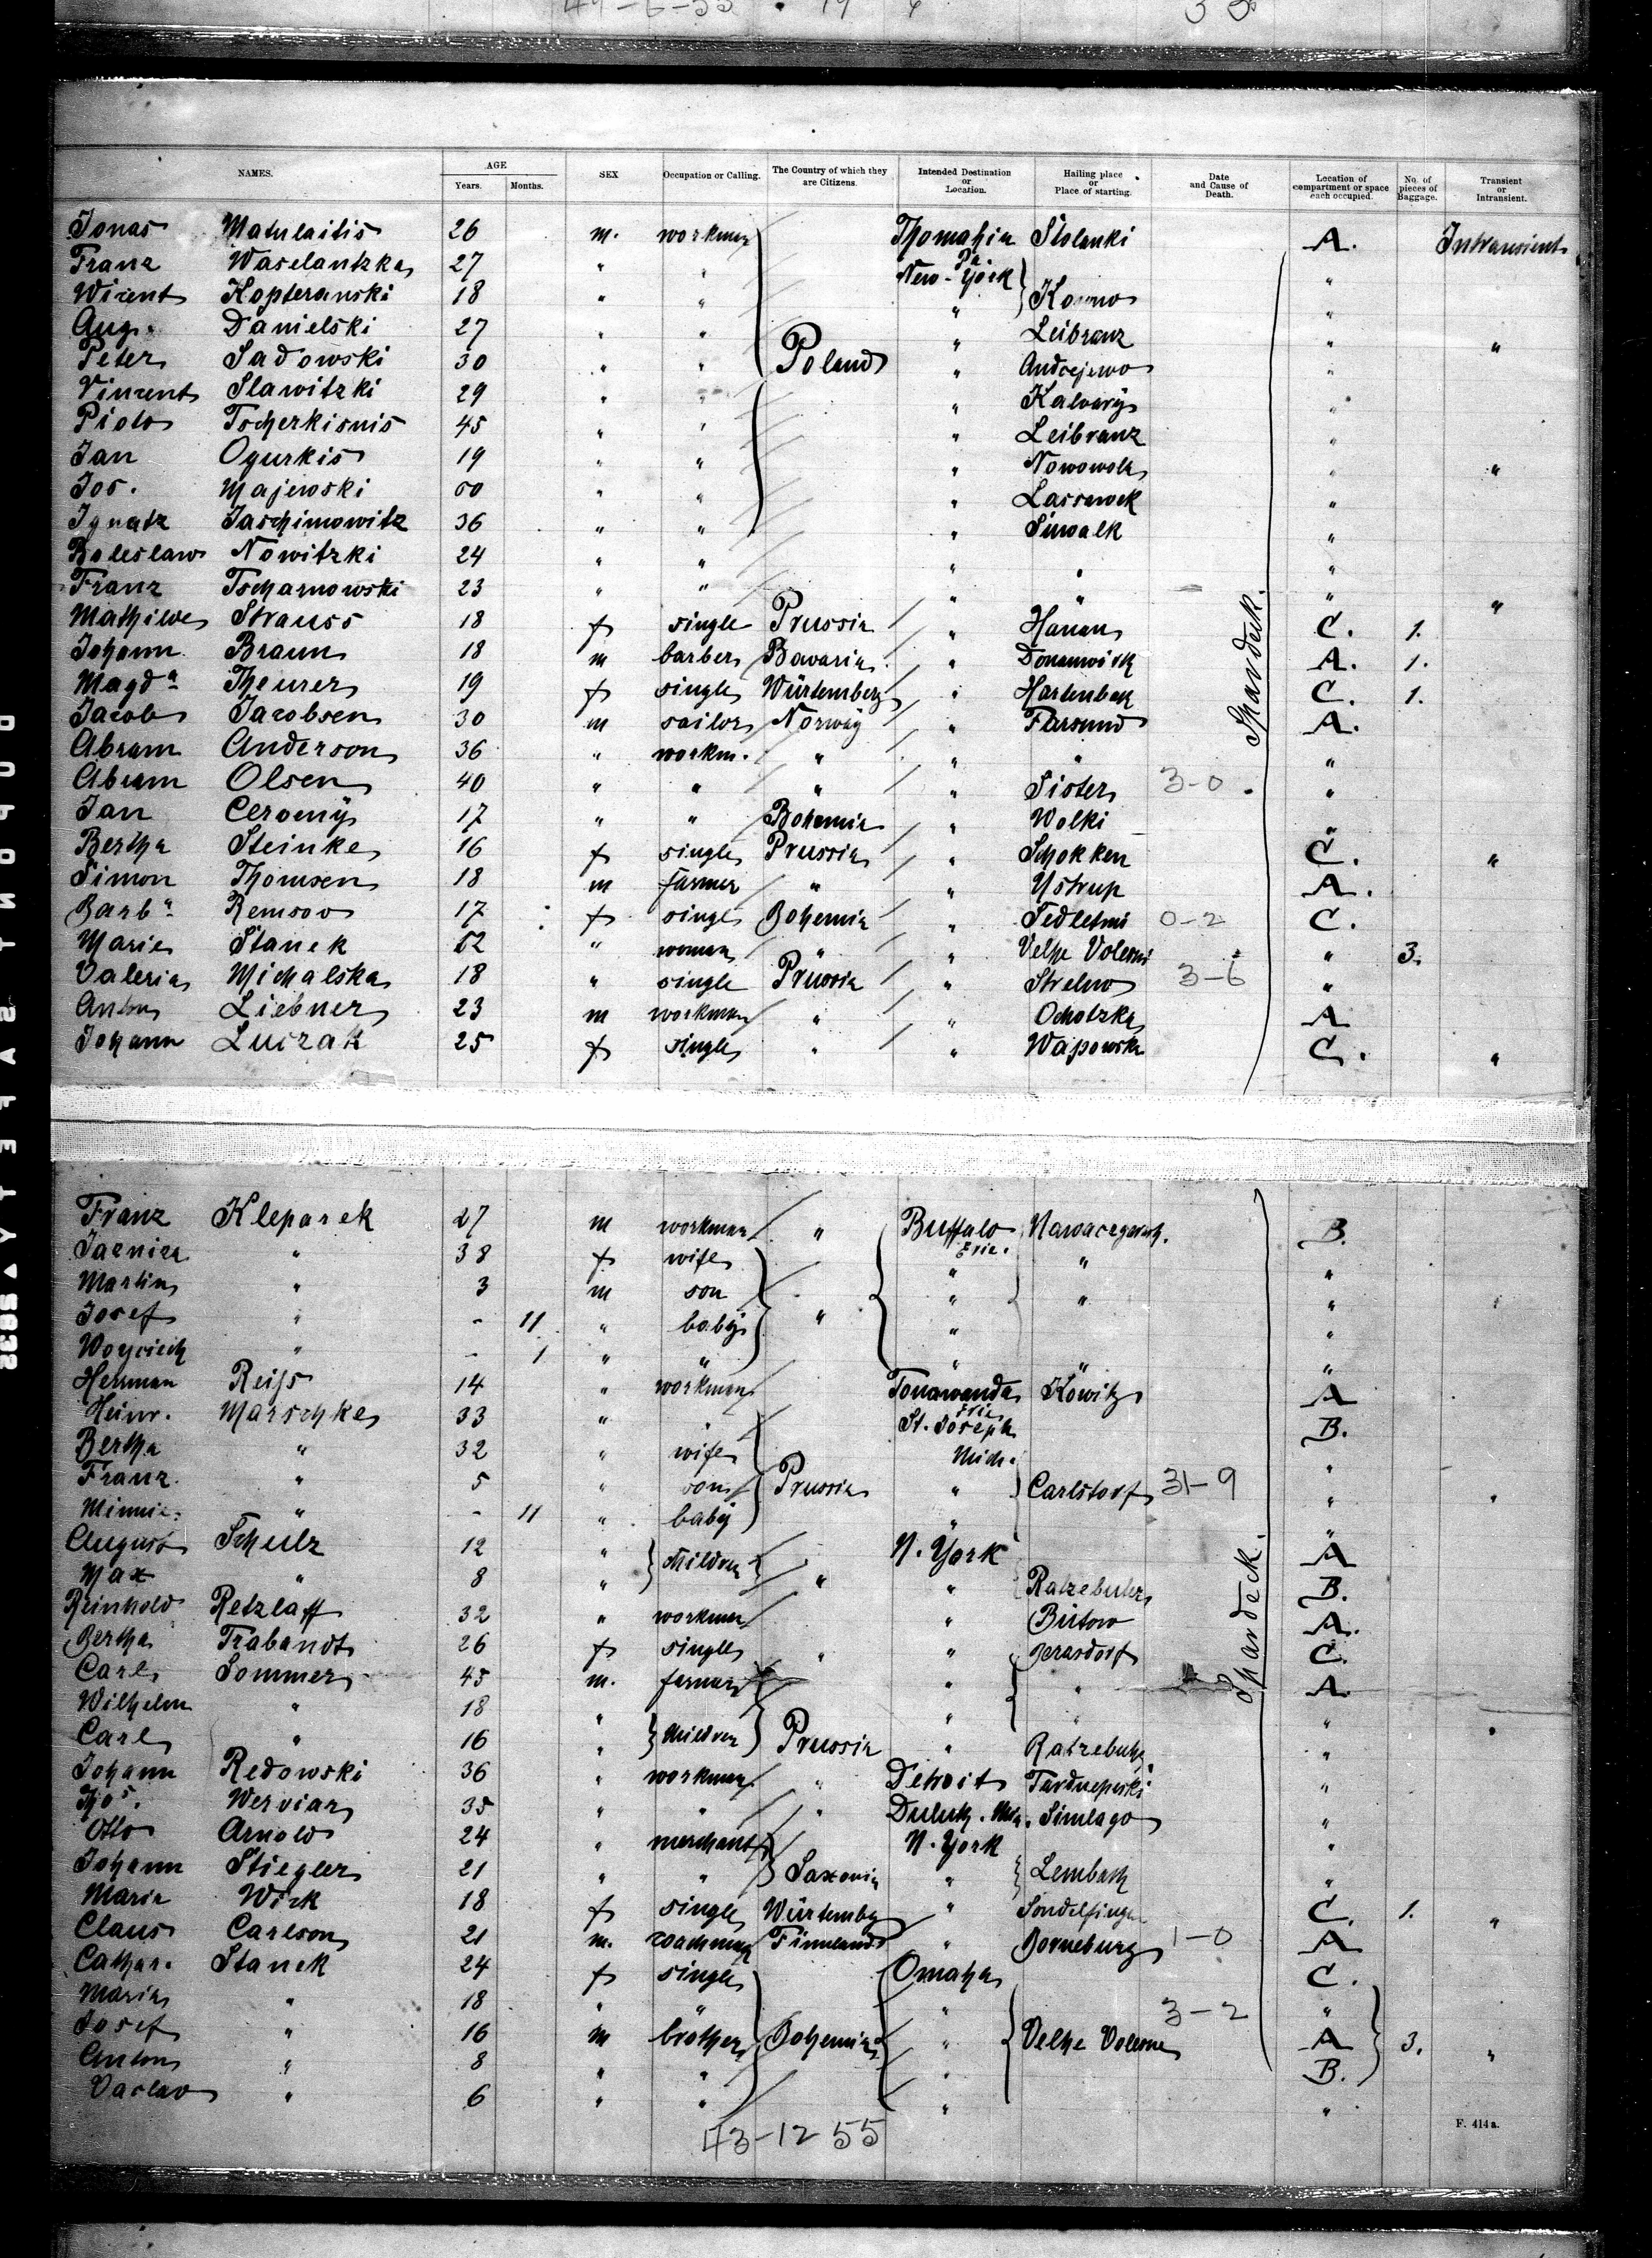 NAMES. AGE Years. Months. SEX Occupation or Calling. The Country of which they are Citizens. Intended Destination or Location. Hailing place or Place of starting. Date and Cause of Death. Location of compartment or space each occupied. No. of pieces of Baggage. Transient or Intransient.
Jonas Matulaitis 26 m. workmen Pa. A. Intransient
Franz Waselantzka 27 " " New-York "
Wizent Kopteranski 18 " " " Kowno "
Aug. Danielski 27 " " " Leibranz " "
Peter Sadowski 30 " " Poland " Andrejewo "
Vinzent Slawitzki 29 " " " Kalvary "
Piolo Tscherkisnis 45 " " " Leibranz "
Jan Ogurkis 19 " " " Nowowola " "
Jos. Majewski 60 " " " "
Ignatz Jaschimowitz 36 " " " Suwalk "
Boleslaw Nowitzki 24 " " " " "
Franz Tscharnowski 23 " " " " " "
Mathilde Strauss 18 f single Prussia " Hanau C. 1.
Johann Braun 18 m barber Bavaria " A. 1.
Magda Theurer 19 f single Würtemberg " C. 1.
Jacob Jacobsen 30 m sailor Norway " Farsund A.
Abram Anderson 36 " workm. " " " "
Abram Olsen 40 " " " " Sister 3-0 "
Jan Ceromy 17 " " Bohemia " Wolki "
Bertha Steinke 16 f single Prussia " Schokken C. "
Simon Thomsen 18 m farmer " " Ystrup A.
Barba Remsov 17 f single Bohemia " 0-2 C.
Marie Stanek 52 " woman " " " 3.
Valeria Michalska 18 " single Prussia " Strelno 3-6 "
Anton Liebner 23 m workman " " A
Johann Luczak 25 f single " " Wapowska C. "
Spardeck.
Franz Kleparek 27 m workman " Buffalo B.
" 38 f wife Erie. " "
Martin " 3 m son " " "
Josef " - 11 " baby " " "
Woyciech " - 1 " " " "
Herman Reiss 14 " workman Tonawanda Kowitz A
Heinr. Marschke 33 " " Erie St. Joseph B.
Bertha " 32 " wife Mich. "
Franz " 5 " son Prussia " Carlstorf 31-9 " "
Minnie " - 11 " baby " "
August Schulz 12 " children N. York A
Max " 8 " " " Ratzebuhr B.
Reinhold Retzlaff 32 " workman " Bütow A.
Bertha Trabandt 26 f single " " C.
Carl Sommer 45 m. farmer " " A
Wilhelm " 18 " children " " "
Carl " 16 " Prussia " Ratzebuhr "
Johann Redowski 36 " workman " Detroit "
Werviar 35 " " " Duluth. Simlago "
Otto Arnold 24 " merchant N. York "
Johann Stiegler 21 " " Saxonia " Lembach "
Maria Wick 18 f single Würtemberg " C. 1. "
Claus Carlson 21 m. coachman Finnland " 1-0 A
Cathar. Stanek 24 f single Omaha C.
Maria " 18 " " " 3-2 "
Josef " 16 m brother Bohemia " A 3. "
Anton " 8 " " " B.
Vaclav " 6 " " " "
Spardeck.
43-12 55
F. 414a.